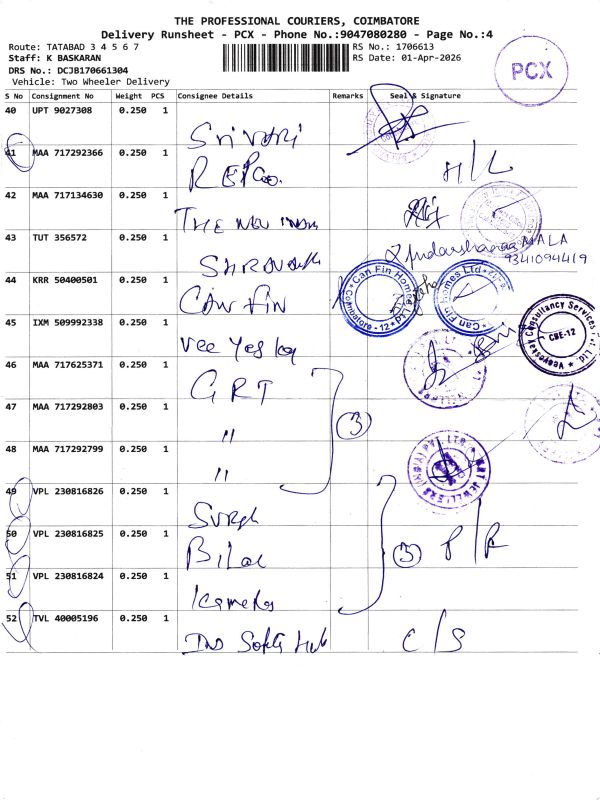 THE PROFESSIONAL COURIERS, COIMBATORE
Delivery Runsheet - PCX - Phone No.:9047080280 - Page No.:4
Route: TATABAD 3 4 5 6 7
RS No.: 1706613
Staff: K BASKARAN
RS Date: 01-Apr-2026
DRS No.: DCJB170661304
Vehicle: Two Wheeler Delivery
PCX
S No Consignment No Weight PCS Consignee Details Remarks Seal & Signature
40 UPT 9027308 0.250 1
41 MAA 717292366 0.250 1 REPCO. H/L
42 MAA 717134630 0.250 1 THE NEW INDIA
43 TUT 356572 0.250 1
9341094419
44 KRR 50400501 0.250 1 CAN FIN
Can Fin Homes Ltd
Coimbatore - 12
Can Fin Homes Ltd
45 IXM 509992338 0.250 1 Vee Yes
Veeyessay Consultancy Services
CBE-12
46 MAA 717625371 0.250 1 GRT
47 MAA 717292803 0.250 1 "
3
48 MAA 717292799 0.250 1 "
GRT JEWELLERS (INDIA) PVT. LTD.
49 VPL 230816826 0.250 1
50 VPL 230816825 0.250 1 Bilal
3
P/R
51 VPL 230816824 0.250 1
52 TVL 40005196 0.250 1 C/S